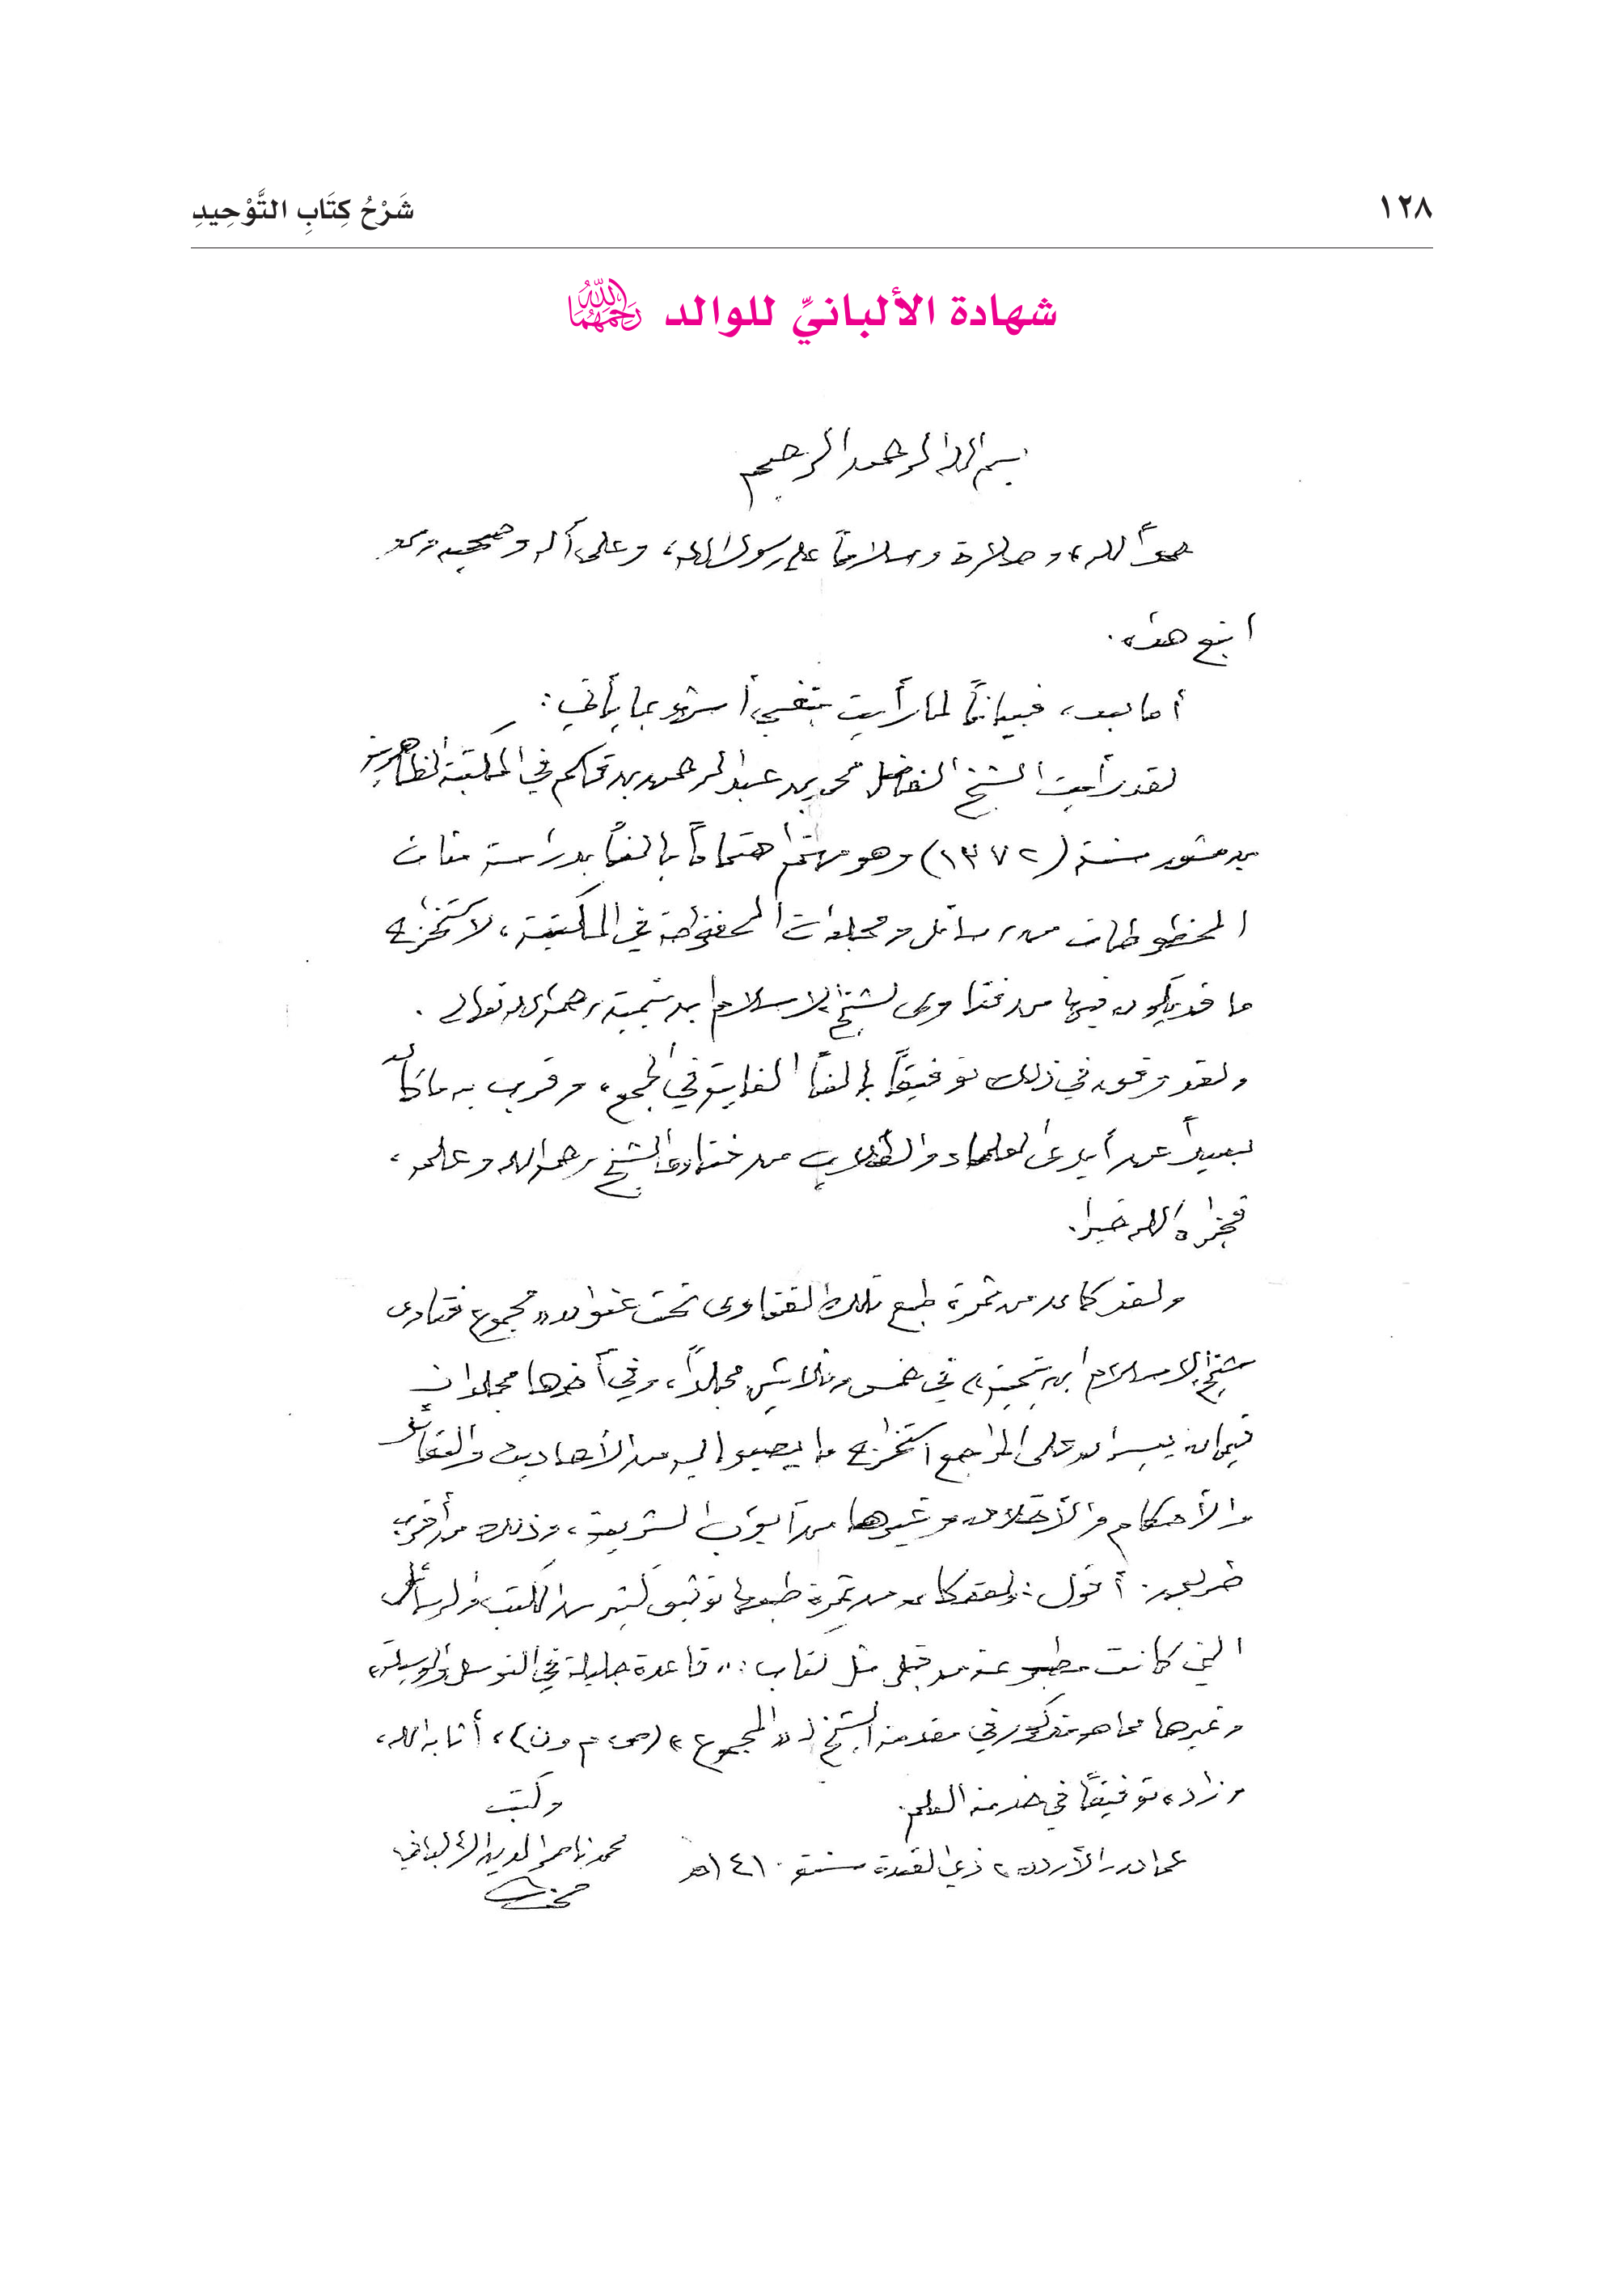 ١٢٨
شَرْحُ كِتَابِ التَّوْحِيدِ
شهادة الألبانيِّ للوالد رَحِمَهُمَا اللَّهُ
بسم الله الرحمن الرحيم
حمداً لله، وصلاة وسلاماً على رسول الله، وعلى آله وصحبه ومن
اتبع هداه.
أما بعد، فبياناً لما رأيت بنفسي أشهد بما يأتي:
لقد رأيت الشيخ الفاضل محمد بن عبد الرحمن بن قاسم في المكتبة الظاهرية
بدمشق سنة (١٣٧٢) وهو مهتم اهتماماً بالغاً بدراسة مئات
المخطوطات من رسائل ومجلدات المحفوظة في المكتبة، لاستخراج
ما قد يكون فيها من فتاوى لشيخ الاسلام ابن تيمية رحمه الله تعالى.
ولقد وفق في ذلك توفيقاً بالغاً الغاية في الجمع، وقرب به ما كان
بعيداً عن أيدي العلماء والطلاب من فتاوى الشيخ رحمه الله وعلمه،
فجزاه الله خيرا.
ولقد كان من ثمرة طبع تلك الفتاوى تحت عنوان «مجموع فتاوى
شيخ الاسلام ابن تيمية» في خمس وثلاثين مجلداً، وفي آخرها مجلدان
فهرسان ييسران على المراجع استخراج ما يصبو إليه من الأحاديث والعقائد
والأحكام والأخلاق وغيرها من أبواب الشريعة، وذلك من أقرب
طريق. أقول: ولقد كان من ثمرة طبعها توثيق كثير من الكتب والرسائل
التي كانت مطبوعة من قبل مثل كتاب: «قاعدة جليلة في التوسل والوسيلة»
وغيرها مما هو مذكور في مقدمة الشيخ لـ «المجموع» (ص م ون)، أثابه الله،
وزاده توفيقاً في خدمة العلم.
وكتب
محمد ناصر الدين الألباني
عمان الأردن، ذي القعدة سنة ١٤١٠هـ